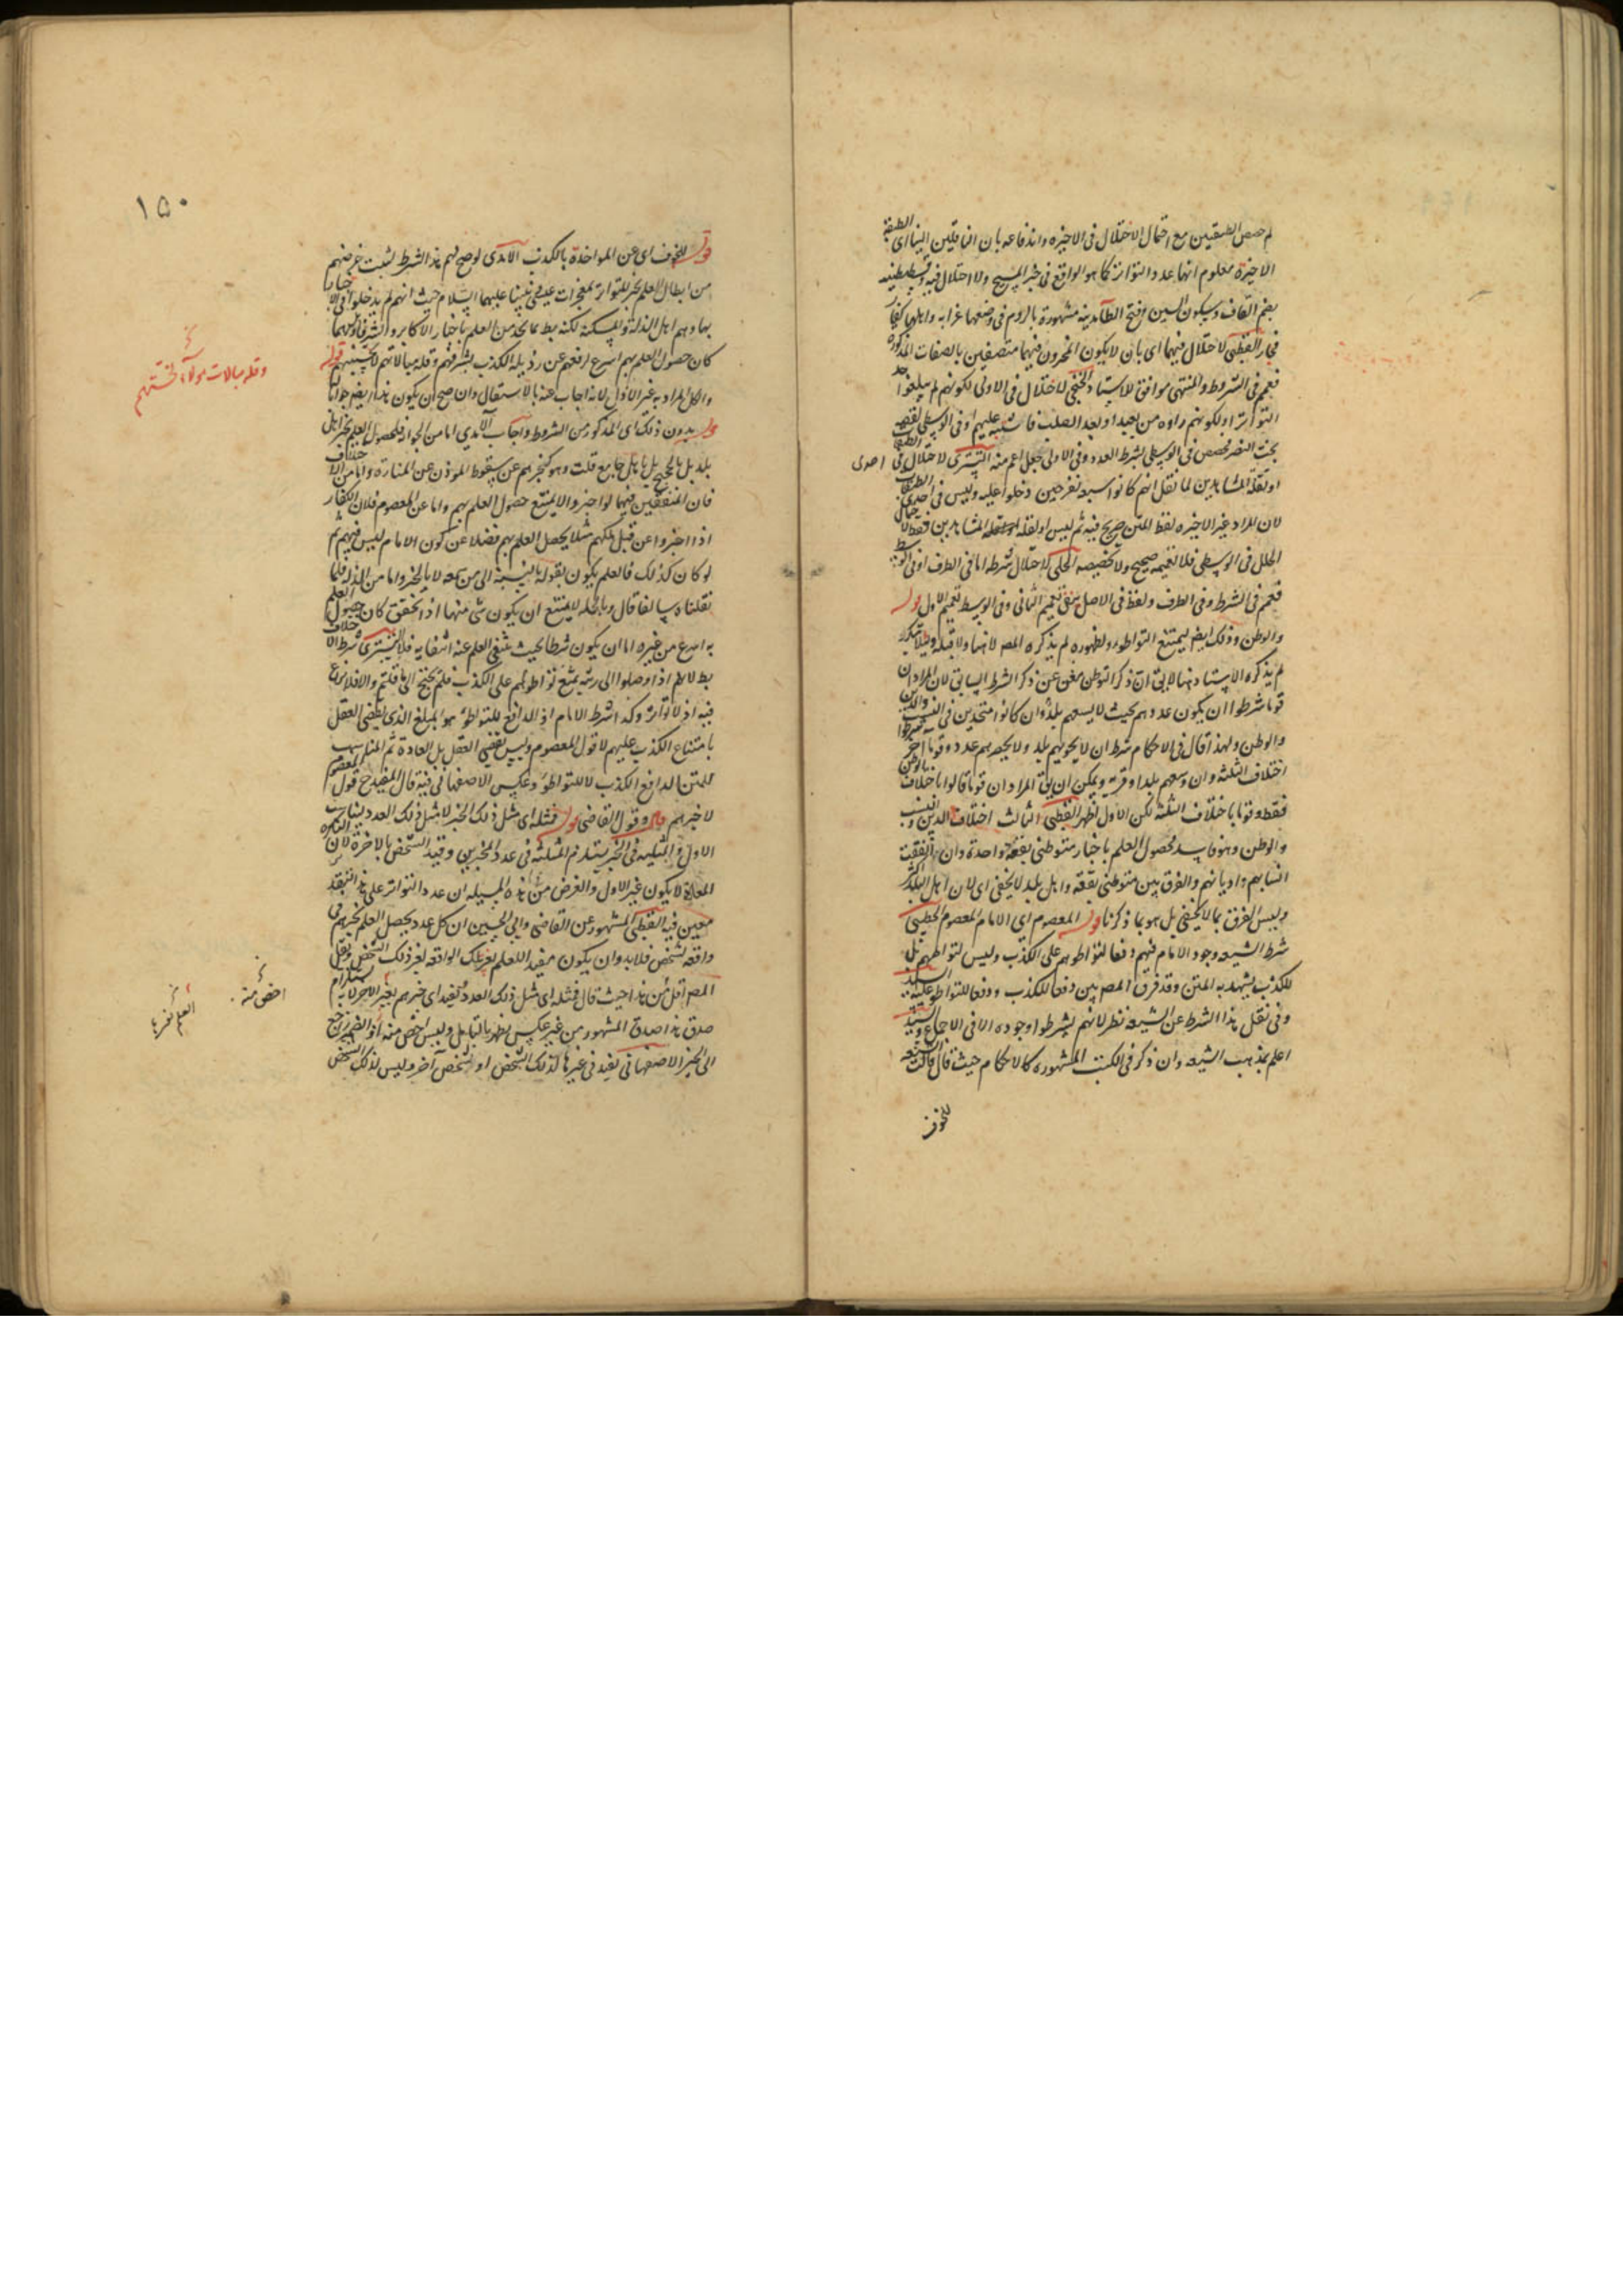 لم خصص الطبقتين مع احتمال الاختلال في الاخيره واندفاعه بان الناقلين الينا اى الطبقة
الاخيرة معلوم انها عدد التواتر كما هو الواقع في خبر المسيح ولا اختلال فيه وقسطنطنيه
بضم القاف وسكون السين وفتح الطآ مدينه مشهورة بالروم في وضعها غرابه واهلها كفار
القطبى لاختلال فيهما اى بان لا يكون المخبرون فيهما متصفين بالصفات المذكوره
فعمم في الشروط والمنتهى موافق للاستاد الخنجى لاختلال في الاولى لكونهم لم يبلغوا حد
التواتر او لكونهم راوه من بعيد او بعد الصلب فاشتبه عليهم او في الوسطى لقصه
بخت النصر فخصص في الوسطى بشرط العدد وفي الاولى جعل اعم منه التسترى لاختلال في الطبقه
احدى
او نقله المشاهدين لما نقل انهم كانوا سبعه نفر حين دخلوا عليه وليس في احدى الطبقات
لان المراد غير الاخيره لفظ المتن صريح فيه ثم ليس او لقله المشاهدين فقط
الخلل في الوسطى فلا تعميمه صحيح ولا تخصيصه الحلى لاختلال شرطه اما في الطرف او في الوسط
فعمم في الشرط وفي الطرف ولفظ في الاصل ينفى تعميم الثانى وفي الوسط تعميم الاول قوله
والوطن وذلك ايضا ليمتنع التواطؤ ولظهوره لم يذكره المص لا هنا ولا قبله
لم يذكره الاستاد هنا لا يق ان ذكر التوطن مغن عن ذكر الشرط السابق لان المراد ان
قوما شرطوا ان يكون عددهم بحيث لا يسعهم بلد وان كانوا متحدين في النسب والدين
والوطن ولهذا قال في الاحكام شرط ان لا يحويهم بلد ولا يحصرهم عدد وقوما اخر شرطوا
اختلاف الثلثه وان وسعهم بلد او قرية ويمكن ان يق المراد ان قوما قالوا باختلاف الوطن
فقط وقوما باختلاف الثلثة لكن الاول اظهر القطبى الثالث اختلاف الدين والنسب
والوطن وهو فاسد لحصول العلم باخبار متوطنى بقعة واحدة وان اتفقت
انسابهم واديانهم والفرق بين متوطنى بقعة واهل بلد لا يخفى اى لان اهل البلد اكثر
وليس الفرق بما لا يخفى بل هو بما ذكرنا قوله المعصوم اى الامام المعصوم الخطيبى
شرط الشيعه وجود الامام فيهم دفعا لتواطوهم على الكذب وليس لتواطهم بل
للكذب يشهد به المتن وقد فرق المص بين دفعا للكذب ودفعا للتواطؤ عليه
وفي نقل هذا الشرط عن الشيعه نظر لانهم لم يشرطوا وجوده الا في الاجماع والسيد
اعلم بمذهب الشيعه وان ذكر في الكتب المشهوره كالاحكام حيث قال قالت الشيعه
للخوف
١٥٠
قوله للخوف اى عن المواخذة بالكذب الآمدى لو صح لهم هذا الشرط لثبت غرضهم
من ابطال العلم بخبر التواتر بمعجزات عيسى ونبينا عليهما السلام حيث انهم لم يدخلوا في الاخبار
بها وهم اهل الذلة والمسكنة لكنه بط بما نجد من العلم باخبار الاكابر والشرفاء وربما
كان حصول العلم بهم اسرع لرفعهم عن رذيله الكذب لشرفهم وقله مبالاتهم لخستهم قوله
وقله مبالات هولاء لخستهم
والكل المراد به غير الاول لانه اجاب عنه بالاستقلال وان صح ان يكون هذا ايضا جوابا
قوله بدون ذلك اى المذكور من الشروط واجاب الآمدى اما من الجواز فلحصول العلم بخبر اهل
بلد بل الحجيج بل باهل جامع قلت وهو كخبرهم عن سقوط الموذن عن المنارة واما من الاختلاف
فان المتفقين فيهما لو اخبروا لا يمتنع حصول العلم بهم واما عن المعصوم فلان الكفار
اذا اخبروا عن قتل ملكهم مثلا يحصل العلم بهم فضلا عن كون الامام ليس فيهم ثم
لو كان كذلك فالعلم يكون بقوله بالنسبة الى من سمعه لا بالخبر واما من الذلة فلما
نقلناه سالفا قال وبالجمله لا يمتنع ان يكون شى منها اذا تحقق كان حصول العلم
به اسرع من غيره اما ان يكون شرطا بحيث ينتفى العلم عند انتفايه فلا التسترى شرط الاختلاف
بط لانهم اذا وصلوا الى رتبة يمتنع تواطوهم على الكذب فلم نحتج الى ما قلتم والا فلا نزاع
فيه اذ لا تواتر وكذا شرط الامام اذ الدافع للتواطؤ هو المبلغ الذى يقضى العقل
بامتناع الكذب عليهم لا قول المعصوم وليس يقضى العقل بل العادة ثم المناسب
للمتن الدافع الكذب لا للتواطؤ وعكس الاصفهانى فيه قال المفيد ح قول المعصوم
لا خبرهم قوله وقول القاضى قوله فمثله اى مثل ذلك الخبر لا مثل ذلك العدد ليناسب
الاول المثليه في الخبر يستلزم المثليه في عدد المخبرين وقيد الشخص بالاخر لان النكره
المعادة لا يكون غير الاول والغرض من هذه المسيله ان عدد التواتر على هذا التقدير
معين فيه القطبى المشهور عن القاضى وابى الحسين ان كل عدد يحصل العلم بخبرهم في
واقعة لشخص فلابد وان يكون مفيدا للعلم بغير تلك الواقعه لغير ذلك الشخص ونقل
المص اقل من هذا حيث قال فمثله اى مثل ذلك العدد يفيد اى خبرهم بغير
اخص منه
العلم بغيرها
صدق هذا صدق المشهور من غير عكس يظهر بالتامل وليس اخص منه اذ الضمير راجع
الى الخبر الاصفهانى يفيد في غيرها لذلك الشخص او لشخص آخر وليس لذلك الشخص